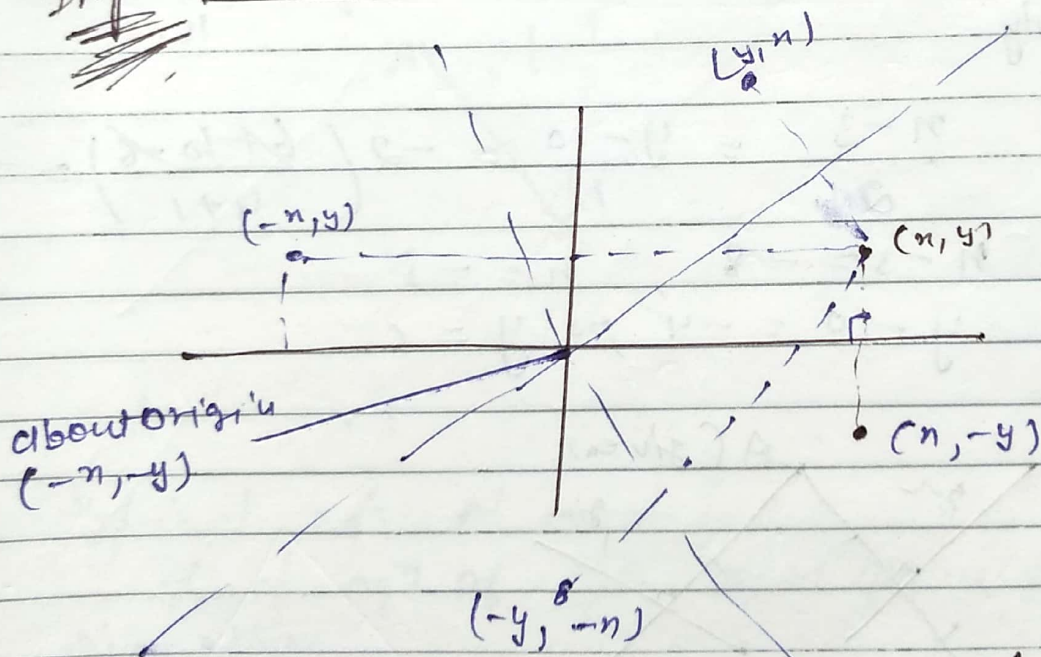 (y, x)
(-x, y)
(x, y)
about origin
(-x, -y)
(x, -y)
(-y, -x)